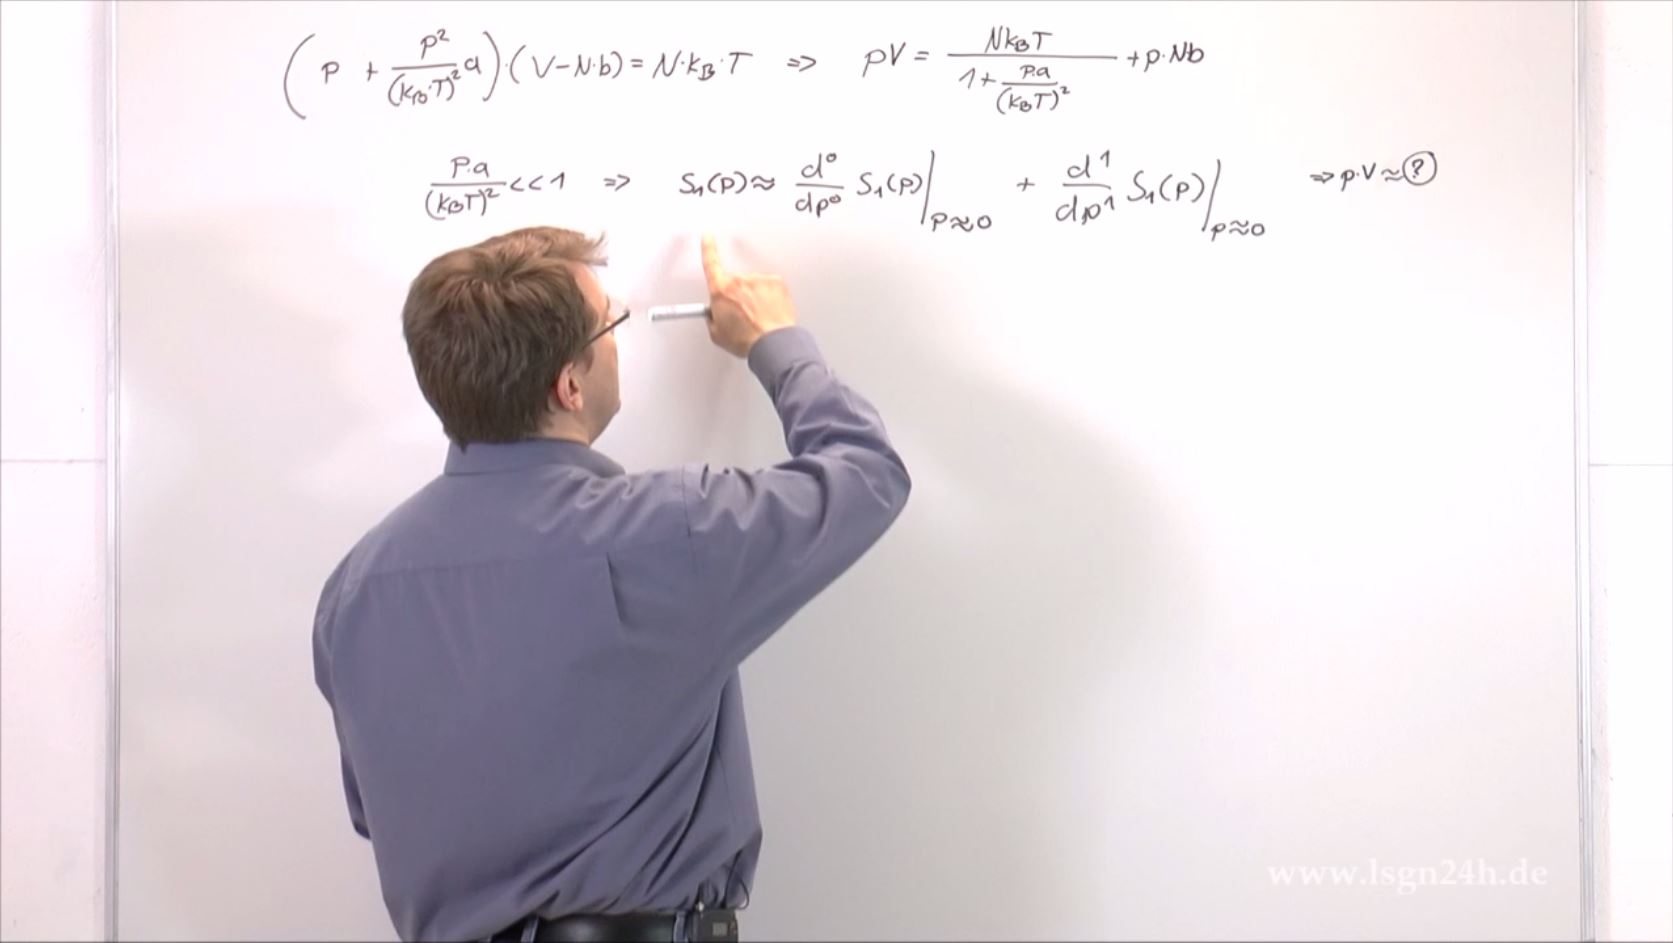 (p + p²/(k_B·T)² a)·(V-N·b) = N·k_B·T ⇒ pV = Nk_BT/(1+ p·a/(k_BT)²) + p·Nb
p·a/(k_BT)² << 1 ⇒ S₁(p) ≈ d⁰/dp⁰ S₁(p)|p≈0 + d¹/dp¹ S₁(p)|p≈0 ⇒ p·V ≈ ?
www.lsgn24h.de